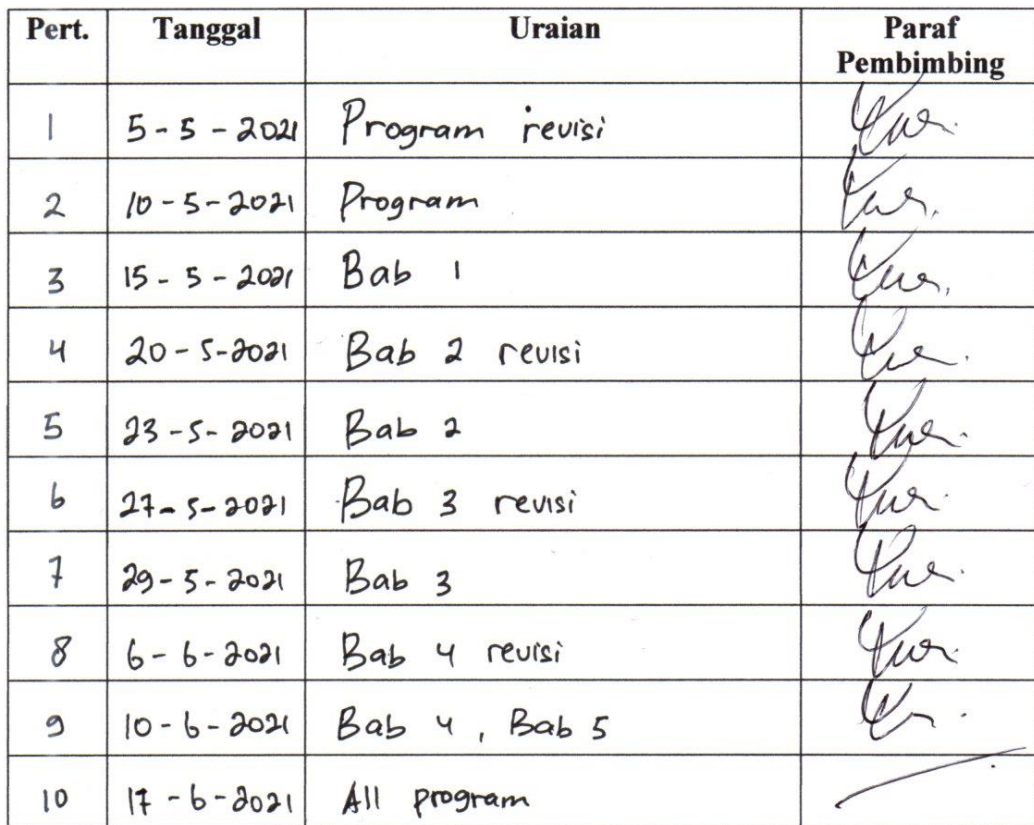 Pert. Tanggal Uraian Paraf
Pembimbing
1 5-5-2021 Program revisi
2 10-5-2021 Program
3 15-5-2021 Bab 1
4 20-5-2021 Bab 2 revisi
5 23-5-2021 Bab 2
6 27-5-2021 Bab 3 revisi
7 29-5-2021 Bab 3
8 6-6-2021 Bab 4 revisi
9 10-6-2021 Bab 4, Bab 5
10 17-6-2021 All program